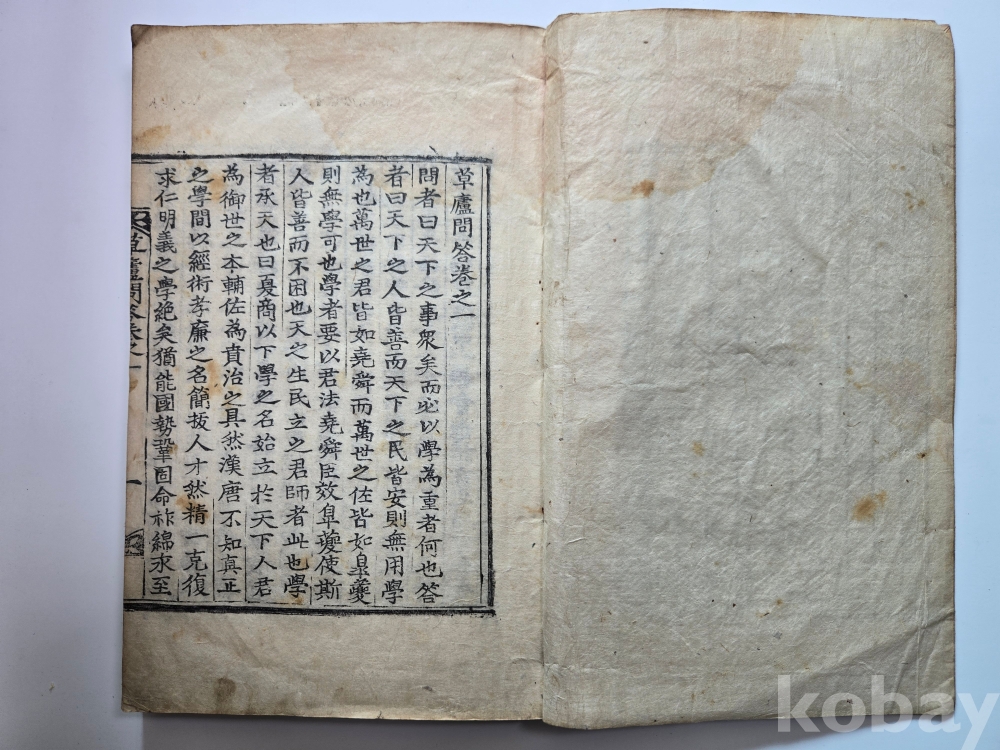 草廬問答卷之一
問者曰天下之事衆矣而必以學為重者何也答
者曰天下之人皆善而天下之民皆安則無用學
為也萬世之君皆如堯舜而萬世之佐皆如皐夔
則無學可也學者要以君法堯舜臣效皐夔使斯
人皆善而不困也天之生民立之君師者此也學
者承天也曰夏商以下學之名始立於天下人君
為御世之本輔佐為賁治之具然漢唐不知真正
之學間以經術孝廉之名簡拔人才然精一克復
求仁明義之學絶矣猶能國勢鞏固命柞綿永至
草廬問答卷之一
一
kobay